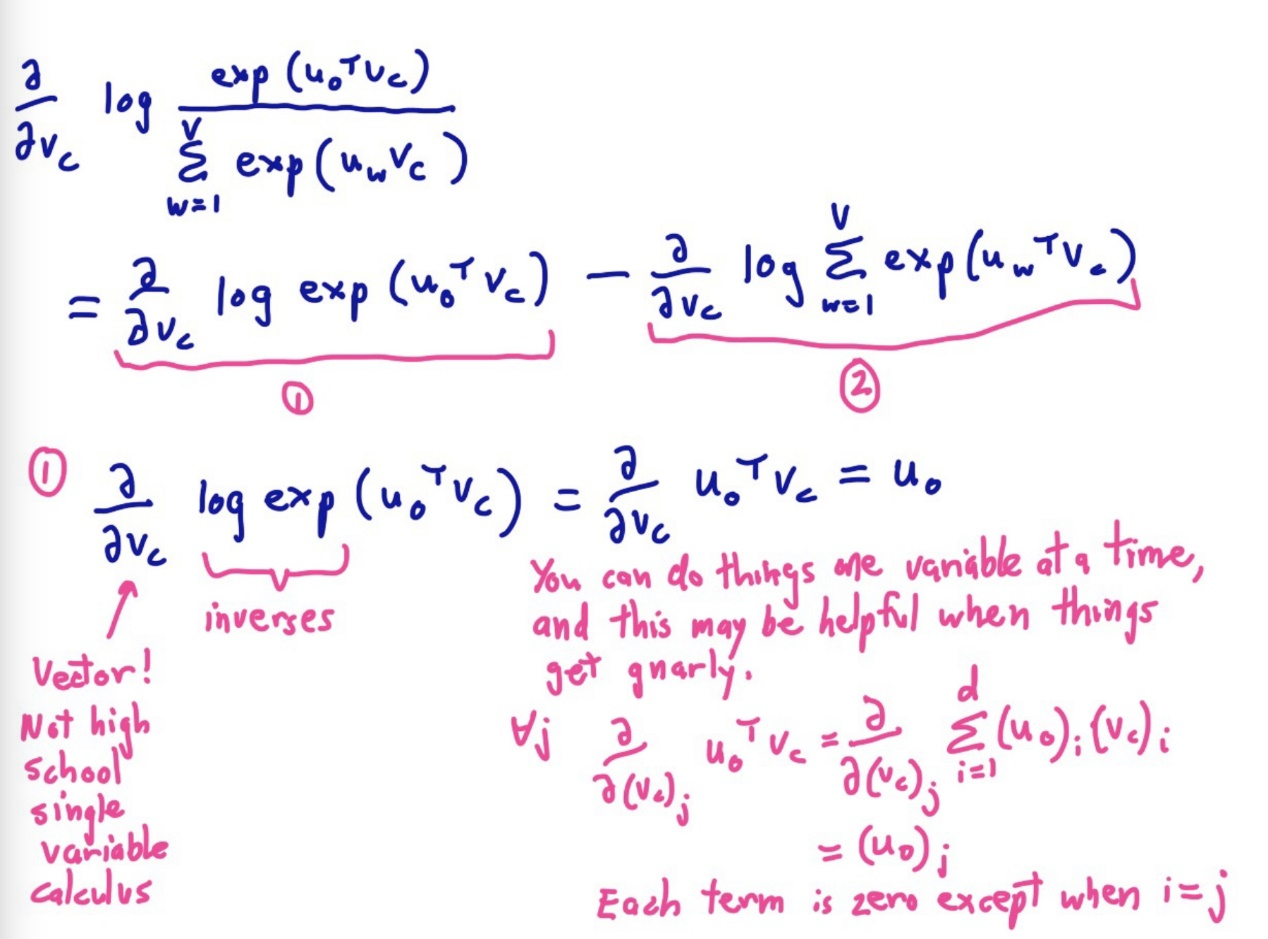 ∂/∂v_c log exp(u_o^T v_c) / Σ_{w=1}^{V} exp(u_w v_c)
= ∂/∂v_c log exp(u_o^T v_c) − ∂/∂v_c log Σ_{w=1}^{V} exp(u_w^T v_c)
① ②
① ∂/∂v_c log exp(u_o^T v_c) = ∂/∂v_c u_o^T v_c = u_o
inverses
Vector!
Not high
school
single
variable
calculus
You can do things one variable at a time,
and this may be helpful when things
get gnarly.
∀j ∂/∂(v_c)_j u_o^T v_c = ∂/∂(v_c)_j Σ_{i=1}^{d} (u_o)_i (v_c)_i
= (u_o)_j
Each term is zero except when i=j